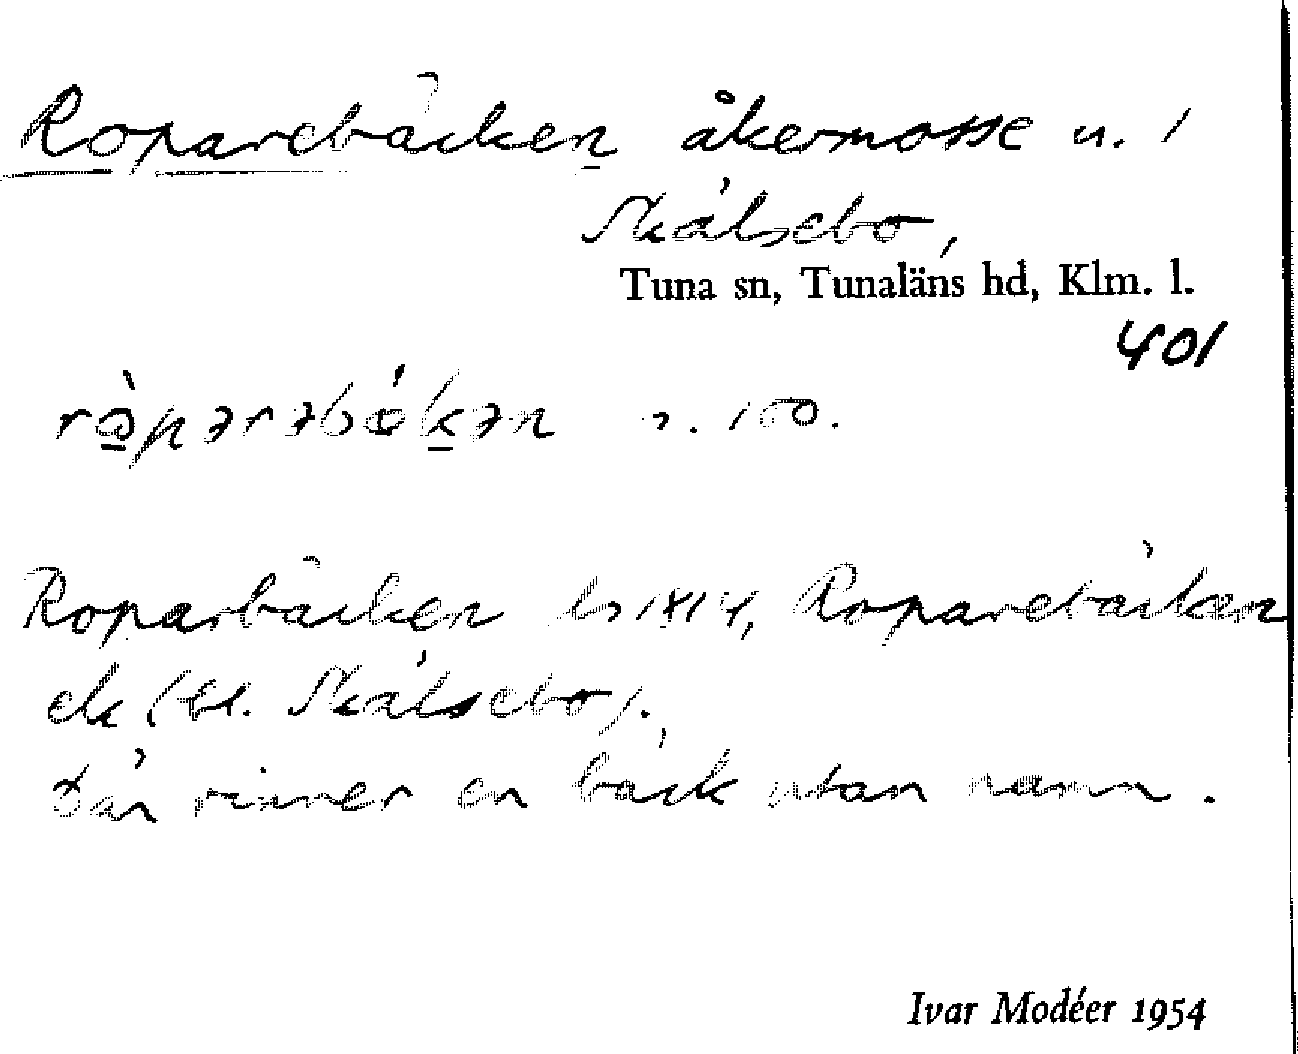 Roparebäcken åkermosse u. 1
Skälsebo,
Tuna sn, Tunaläns hd, Klm. l.
401
s. 100.
Roparbäcken ls 1814, Roparebäcken
ek (bl. Skälsebo).
Där rinner en bäck utan namn.
Ivar Modéer 1954